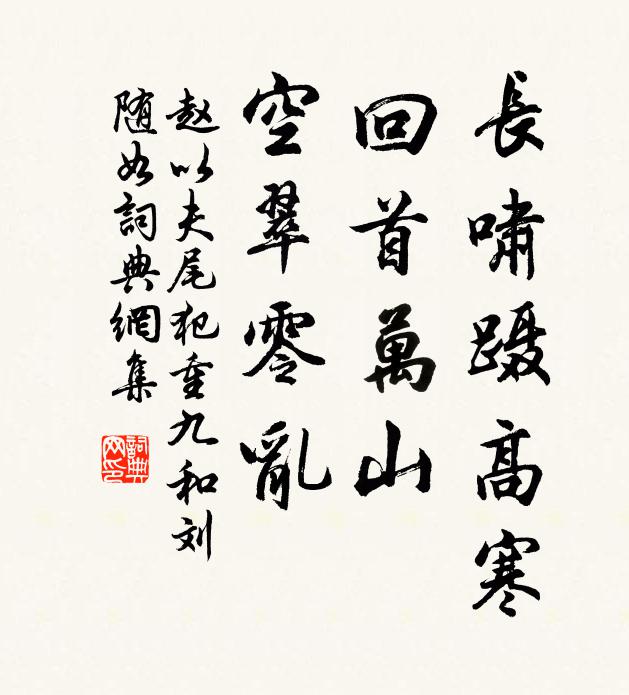 長嘯蹑高寒
回首萬山
空翠零亂
赵以夫尾犯重九和刘
随如詞典網集
詞典
网印